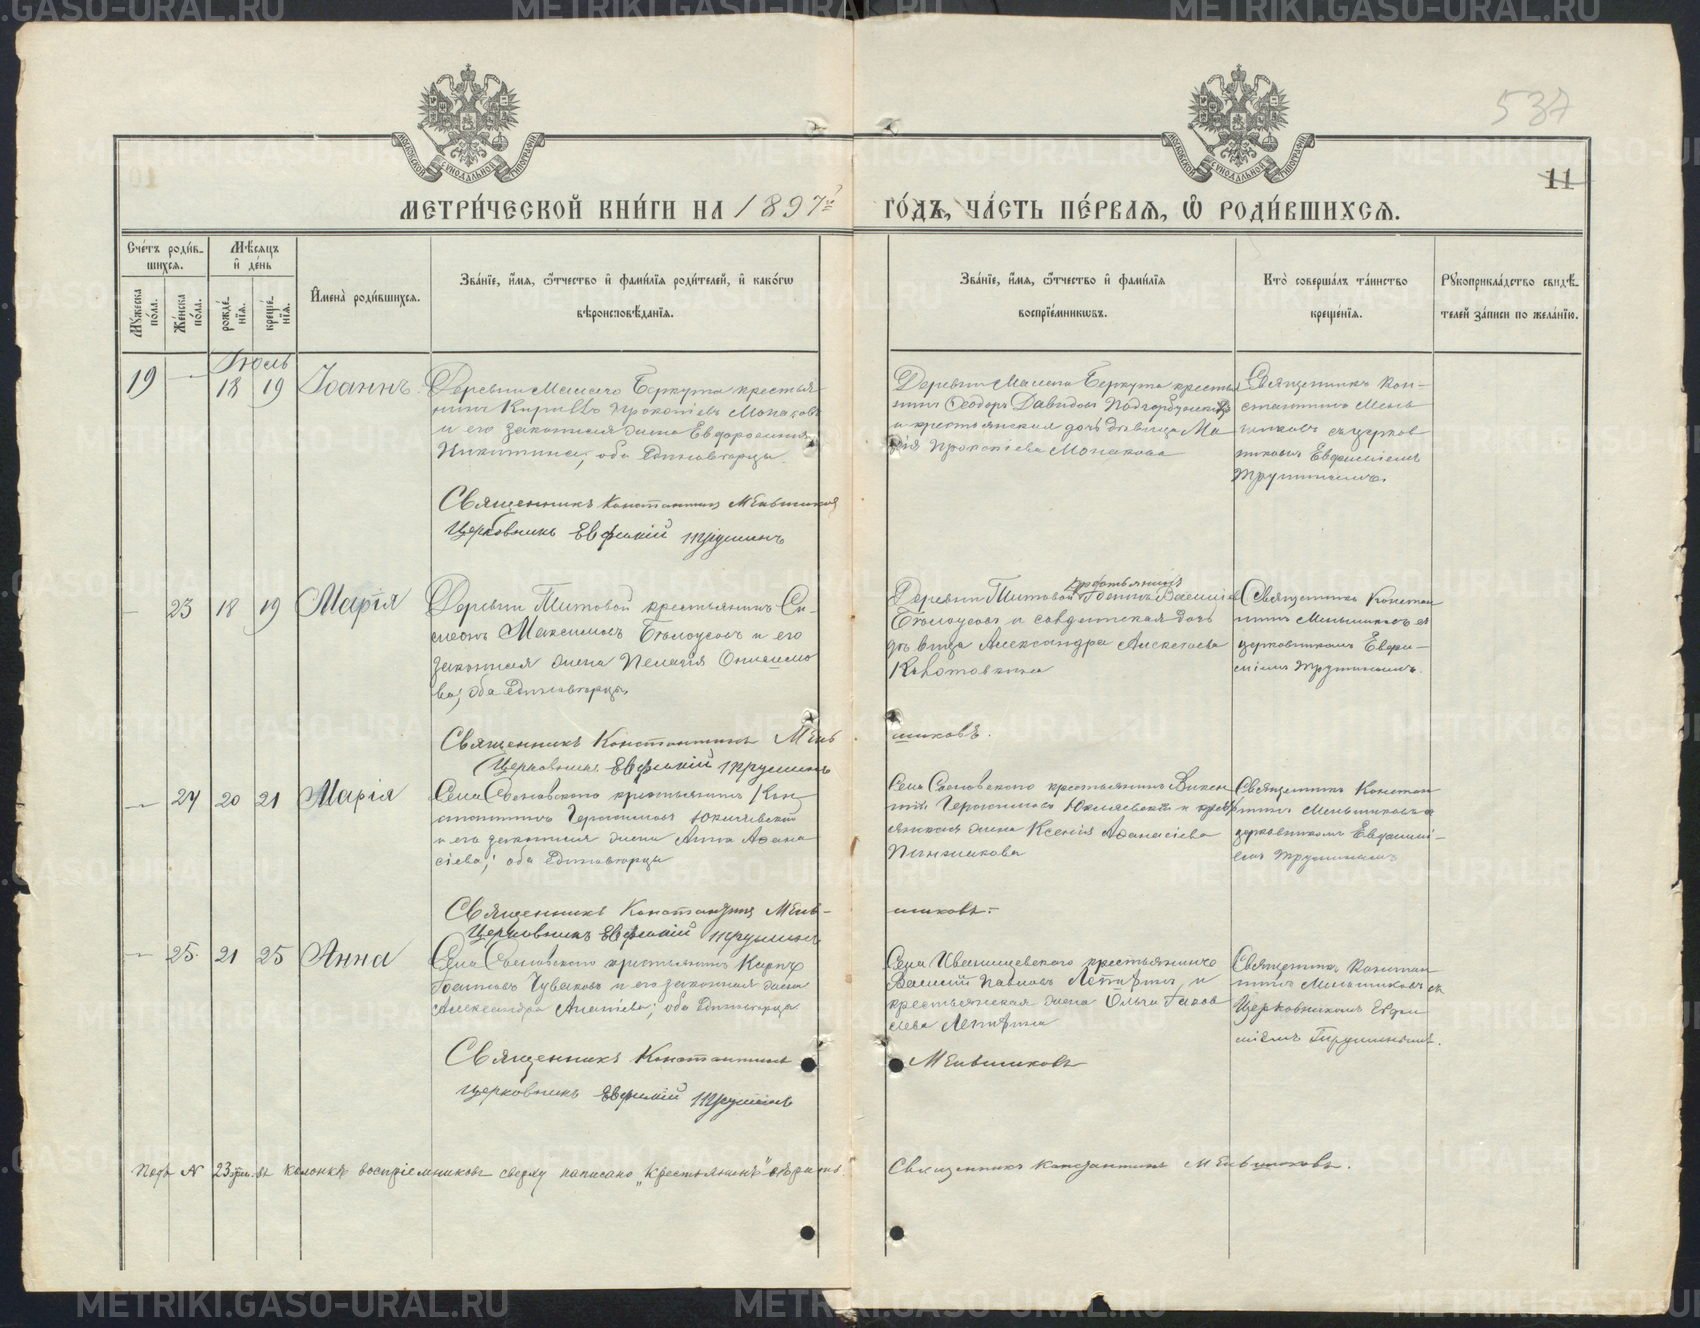 537
11
МЕТРИ́ЧЕСКОЙ КНИ́ГИ НА 1897й ГО́ДЪ, ЧА́СТЬ ПЕ́РВАЯ, Ѡ РОДИ́ВШИХСЯ.
Сче́тъ роди́в-
шихся.
Му́жеска по́ла.
Же́нска по́ла.
Мѣ́сяцъ
и де́нь
рожде́нїя.
креще́нїя.
Имена̀ роди́вшихся.
Зва́нїе, и́мя, ѻ́тчество и фами́лїя роди́телей, и како́гѡ
вѣроисповѣ́данїя.
Зва́нїе, и́мя, ѻ́тчество и фами́лїя
воспрїе́мникѡвъ.
Кто̀ соверша́лъ та́инство
креще́нїя.
Рꙋкоприкла́дство свидѣ́-
телей за́писи по жела́нїю.
Іюль
19 — 18 19 Іоаннъ.
Деревни Малаго Беркута крестья-
нинъ Кириллъ Прокопіевъ Монаковъ
и его законная жена Евдоросинія
Никитина; оба Единовѣрцы.
Священникъ Константинъ Меньшиковъ
Церковникъ Евфимій Трушинъ
Деревни Малаго Беркута крестья-
нинъ Ѳеодоръ Давидовъ Подгорбунскихъ
и крестьянская дочь дѣвица Ма-
рія Прокопіева Монакова
Священникъ Кон-
стантинъ Мень-
шиковъ съ церков-
никомъ Евфиміемъ
Трушинымъ.
— 23 18 19 Марія
Деревни Титовой крестьянинъ Си-
меонъ Максимовъ Бѣлоусовъ и его
законная жена Пелагія Онисимо-
ва; оба Единовѣрцы.
Священникъ Константинъ Мень-
Церковникъ Евфимій Трушинъ
крестьянинъ
Деревни Титовой Іоаннъ Василіевъ
Бѣлоусовъ и солдатская дочь
дѣвица Александра Алексѣева
шиковъ.
Священникъ Констан-
тинъ Меньшиковъ съ
церковникомъ Евфи-
міемъ Трушинымъ.
— 24 20 21 Марія
Села крестьянинъ Кон-
стантинъ Герасимовъ Юкляевской
и его законная жена Анна Афана-
сіева; оба Единовѣрцы
Священникъ Константинъ Мень-
Церковникъ Евфимій Трушинъ
Села крестьянинъ Викен-
тій Герасимовъ Юкляевской и крест-
янская жена Ксенія Афанасіева
шиковъ.
Священникъ Констан-
тинъ Меньшиковъ съ
церковникомъ Евфимі-
емъ Трушинымъ
— 25. 21 25 Анна
Села крестьянинъ Карпъ
Іоанновъ Чуваковъ и его законная жена
Александра Ипатіева; оба Единовѣрцы.
Священникъ Константинъ
Церковникъ Евфимій Трушинъ
Села Ивенищевскаго крестьянинъ
Василій Павловъ и
крестьянская жена Ольга Іаков-
лева
Меньшиковъ
Священникъ Констан-
тинъ Меньшиковъ съ
Церковникомъ Евфи-
міемъ Трушинымъ.
Подъ № 23 жен. въ колонкѣ воспріемниковъ сверху написано „крестьянинъ" вѣрить.
Священникъ Константинъ Меньшиковъ.
METRIKI.GASO-URAL.RU